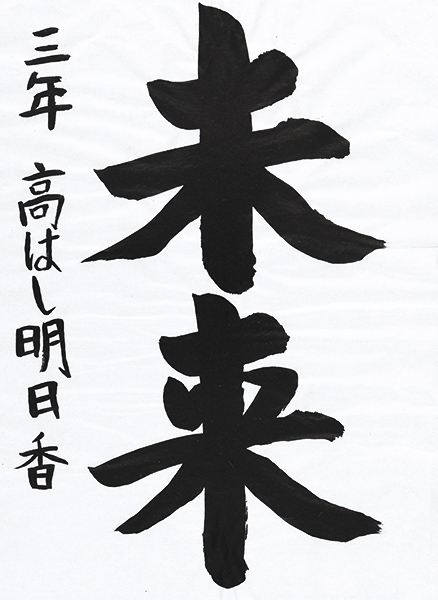 未来
三年 高はし明日香